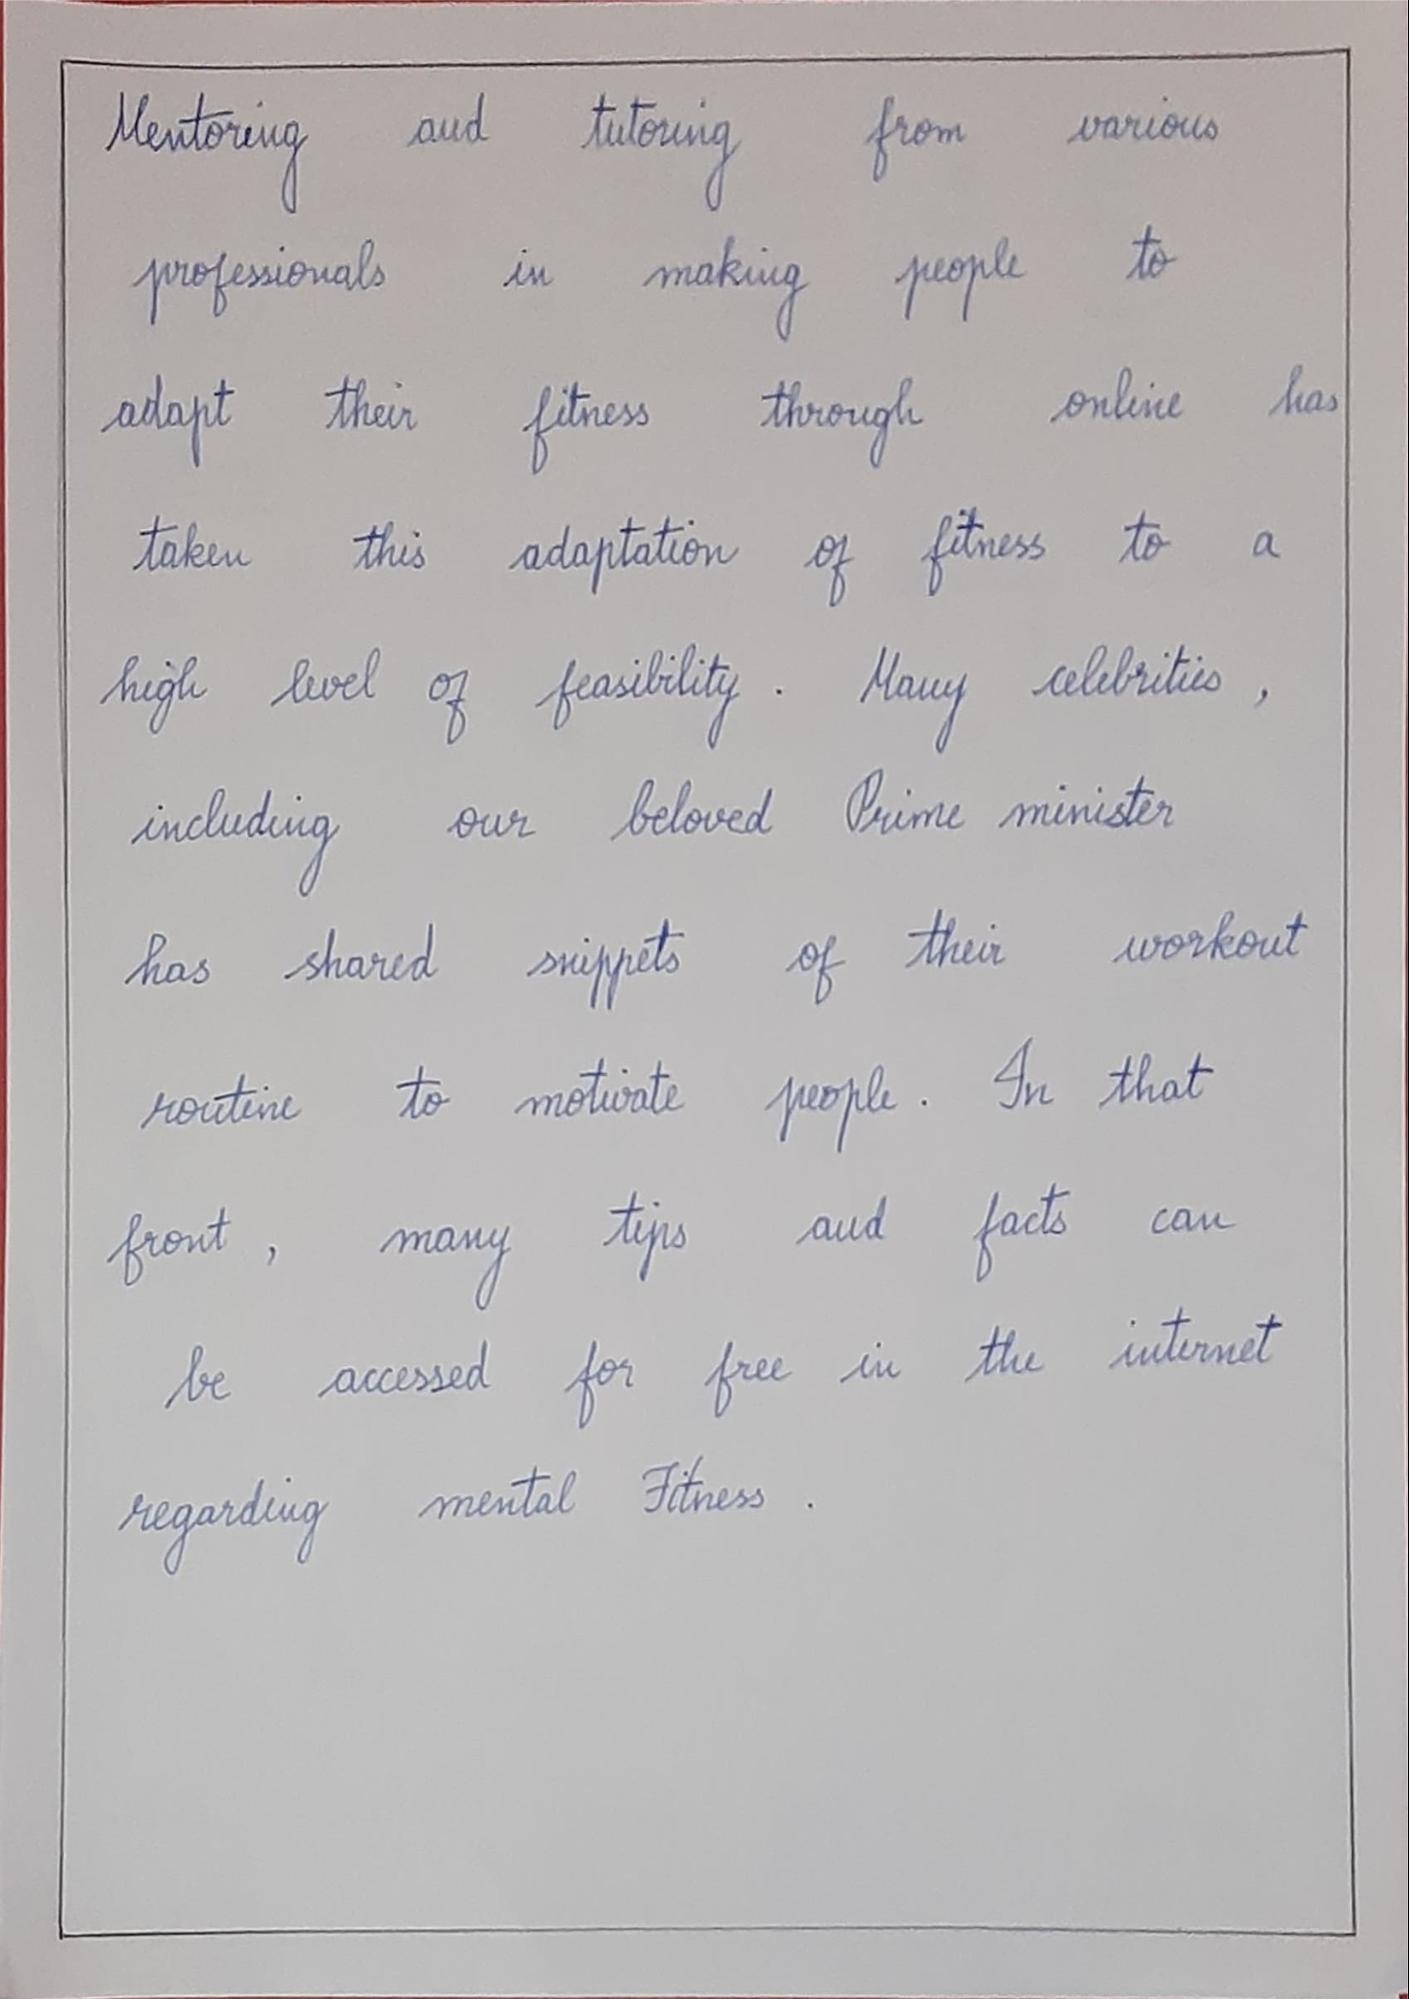 Mentoring and tutoring from various
professionals in making people to
adapt their fitness through online has
taken this adaptation of fitness to a
high level of feasibility. Many celebrities,
including our beloved Prime minister
has shared snippets of their workout
routine to motivate people. In that
front, many tips and facts can
be accessed for free in the internet
regarding mental Fitness.